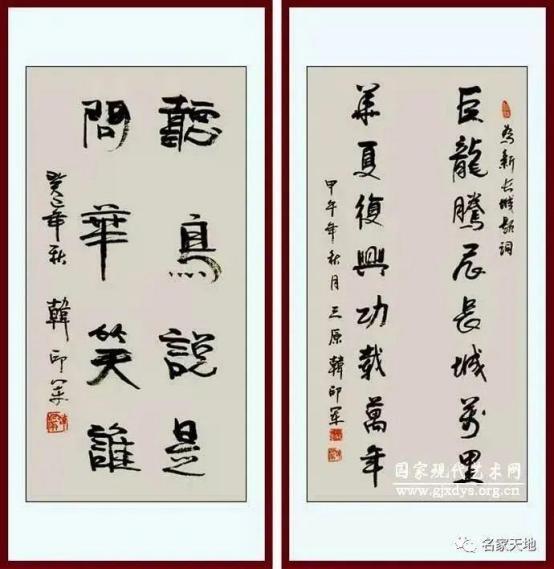 聽鳥說是
問華笑誰
癸巳年秋 韓印軍
為新長城題詞
巨龍騰辰長城萬里
華夏復興功載萬年
甲午年秋月三原韓印軍
国家现代艺术网
www.gjxdys.org.cn
名家天地